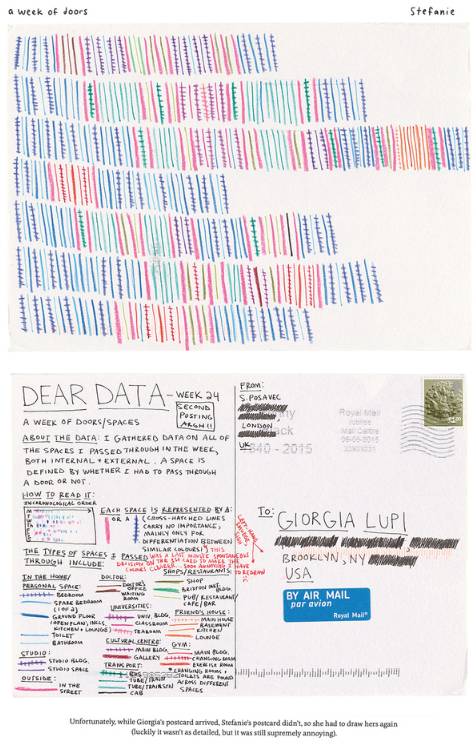 a week of doors
Stefanie
DEAR DATA - WEEK 24
SECOND
POSTING
ARGH!!
A WEEK OF DOORS/SPACES
ABOUT THE DATA: I GATHERED DATA ON ALL OF
THE SPACES I PASSED THROUGH IN THE WEEK,
BOTH INTERNAL + EXTERNAL. A SPACE IS
DEFINED BY WHETHER I HAD TO PASS THROUGH
A DOOR OR NOT.
HOW TO READ IT:
IN CHRONOLOGICAL ORDER
EACH SPACE IS REPRESENTED BY A:
OR A
(CROSS-HATCHED LINES
CARRY NO IMPORTANCE,
MAINLY ONLY FOR
DIFFERENTIATION BETWEEN
SIMILAR COLOURS)
THIS
WAS A LAST MINUTE SPONTANEOUS
DECISION
TO REDRAW
THE TYPES OF SPACES I PASSED
THROUGH INCLUDE:
IN THE HOME/
PERSONAL SPACE:
BEDROOM
SPARE BEDROOM
(1 OF 2)
GROUND FLOOR
(OPEN PLAN, INCL.
KITCHEN + LOUNGE)
TOILET
BATHROOM
STUDIO:
STUDIO BLDG.
STUDIO SPACE
OUTSIDE:
IN THE
STREET
DOCTOR:
DOCTOR'S
OFFICE
WAITING
ROOM
UNIVERSITIES:
UNIV. BLDG
CLASSROOM
TEAROOM
CULTURAL CENTRE:
MAIN BLDG.
GALLERY
TRANSPORT:
BUS
TUBE/TRAIN
TUBE/TRAIN STN
CAB
SHOPS/RESTAURANTS:
SHOP
SHOP INT. BLDG.
PUB/RESTAURANT/
CAFE/BAR
FRIEND'S HOUSE:
MAIN HOUSE
BASEMENT
KITCHEN
LOUNGE
GYM:
MAIN BLDG.
CHANGING ROOM
EXERCISE ROOM
*CHANGING ROOM +
TOILETS ARE FOUND
ACROSS DIFFERENT
SPACES
FROM:
S. POSAVEC
LONDON
UK
1840-2015
Royal Mail
Mail Centre
TO: GIORGIA LUPI
BROOKLYN, NY
USA
BY AIR MAIL
par avion
Royal Mail
Unfortunately, while Giorgia's postcard arrived, Stefanie's postcard didn't, so she had to draw hers again
(luckily it wasn't as detailed, but it was still supremely annoying).